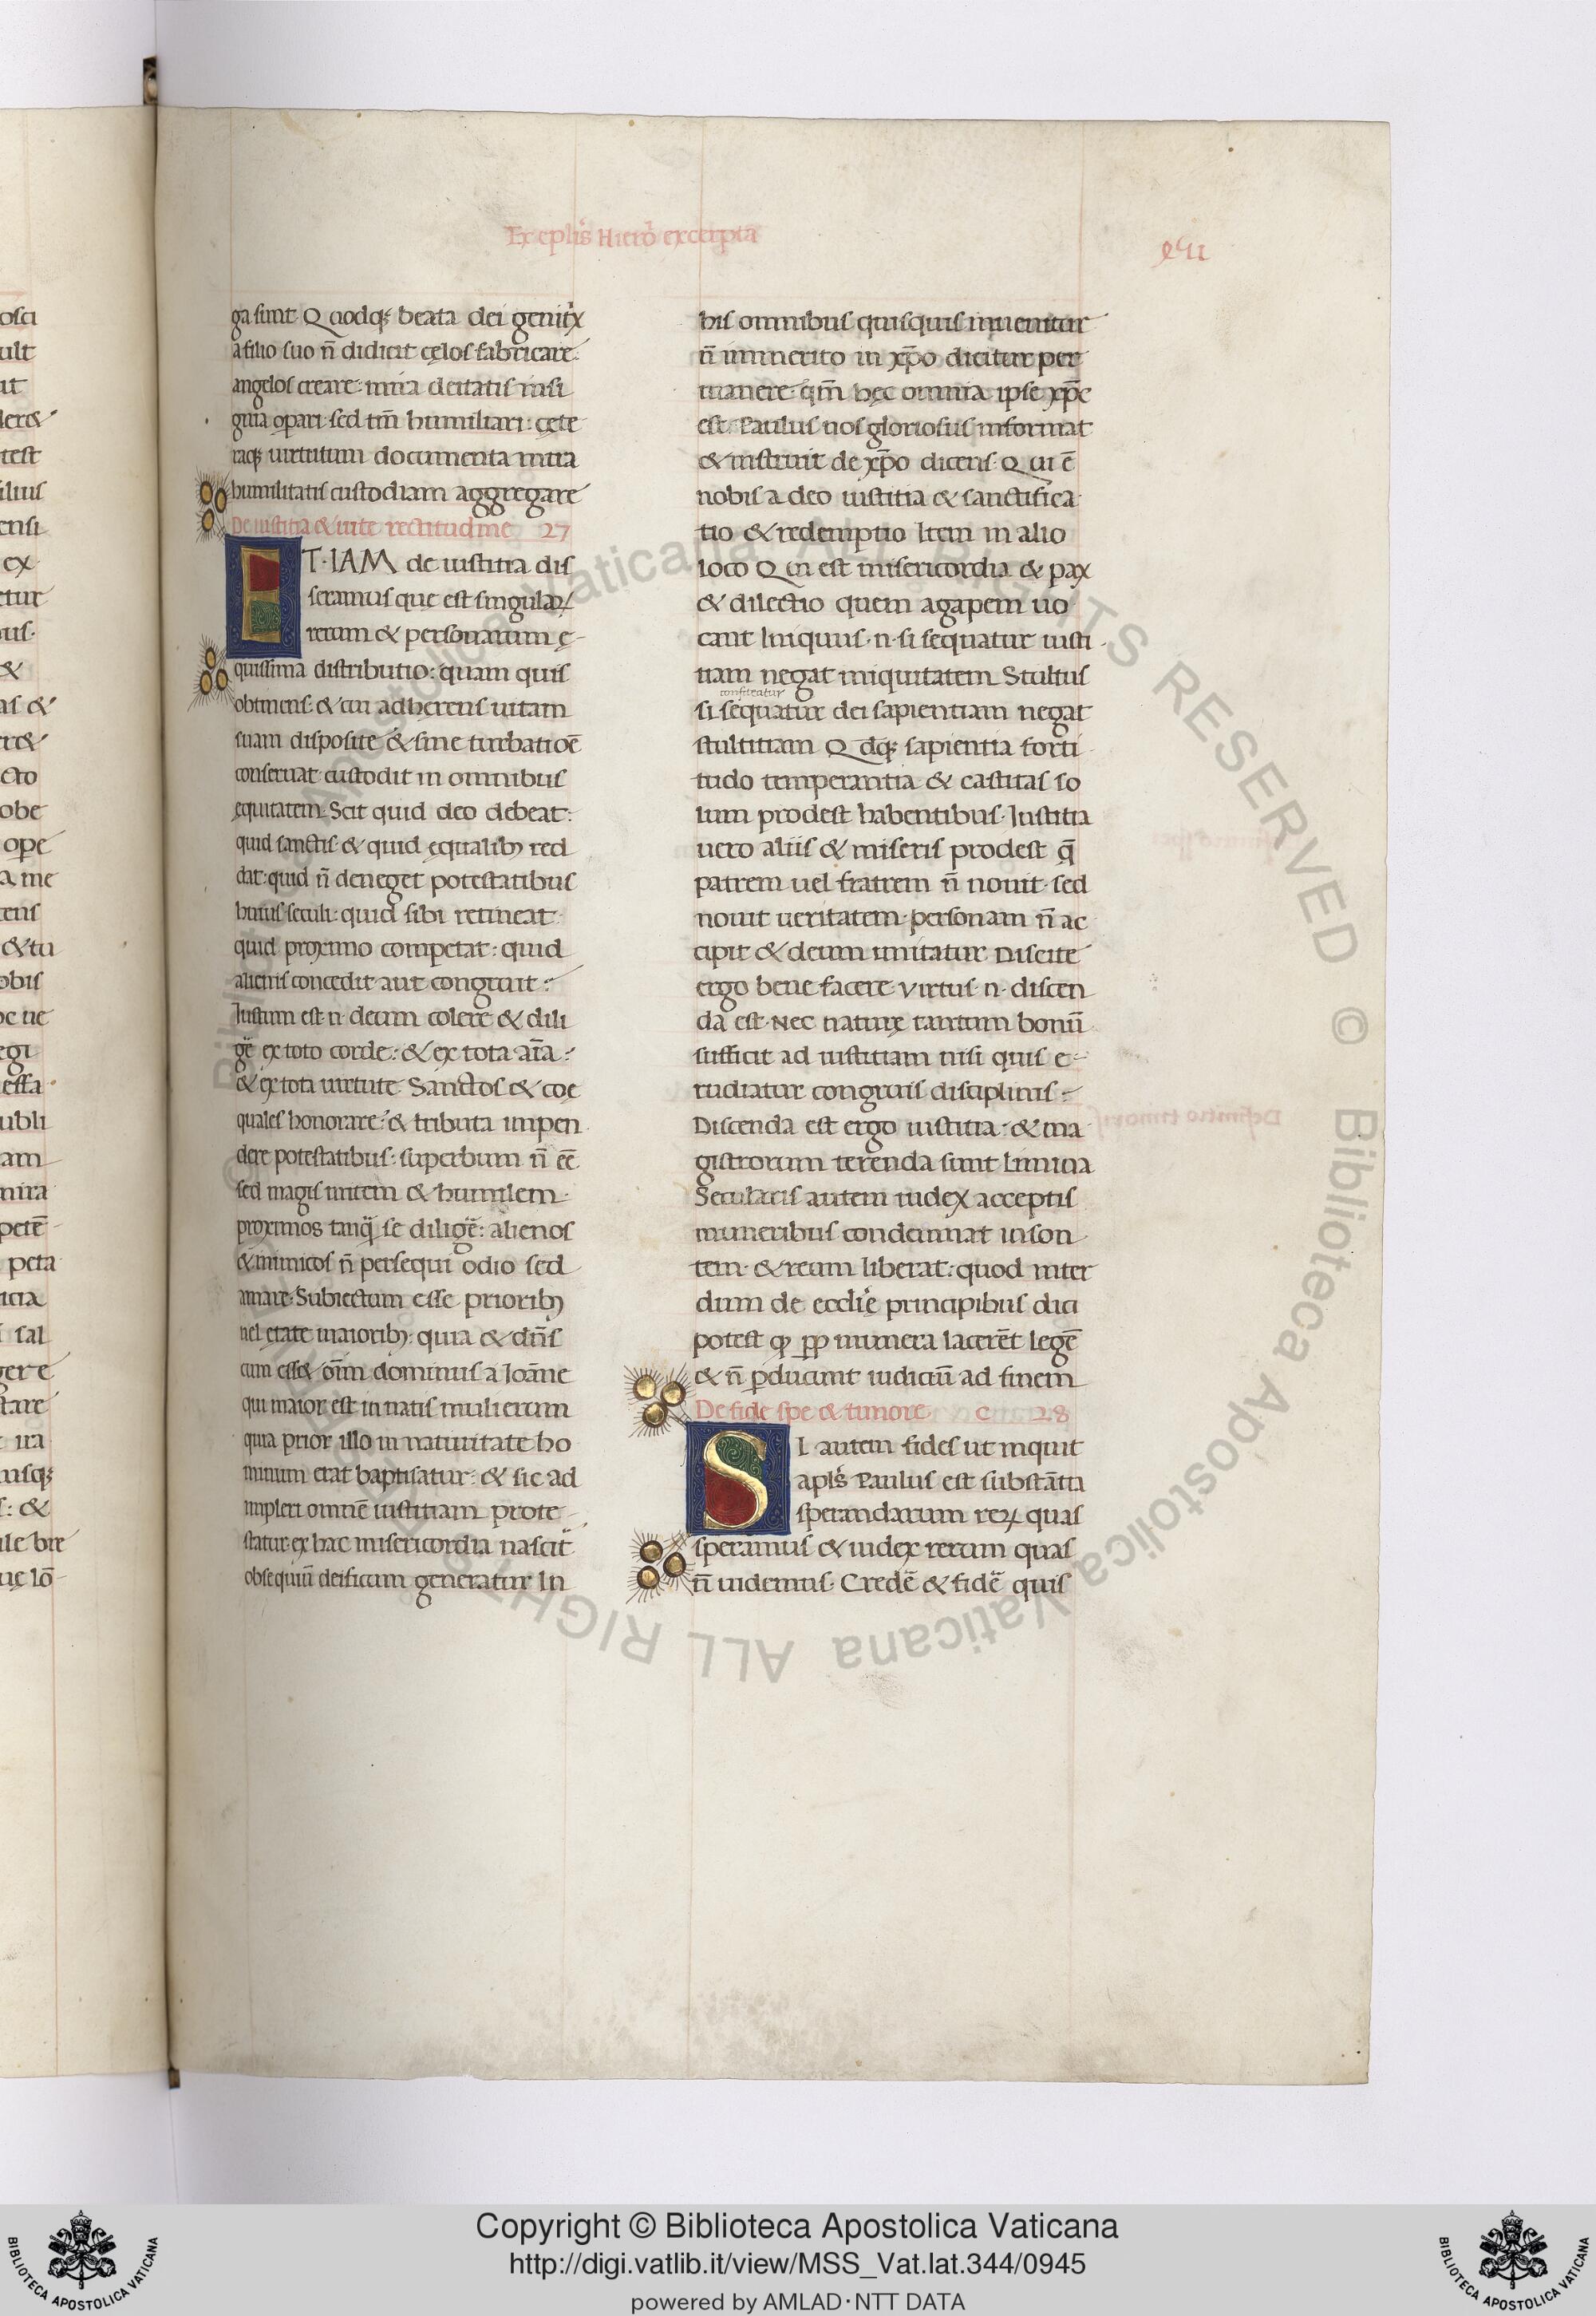 Ex eplis Hiero excerpta
ga sunt. Quodq; beata dei genitrix
a filio suo n̄ didicit cęlos fabricare:
angelos creare: mira deitatis insi
gnia opari sed tm̄ humiliari: cęte
raq; uirtutum documenta intra
humilitatis custodiam aggregare
De iustitia & uite rectitudine 27
ET·IAM de iustitia dis
seramus que est singulaꝝ
rerum & personarum ę-
quissima distributio: quam quis
obtinens: & cui adherens uitam
suam disposite & sine turbatioē
conseruat custodit in omnibus
equitatem. Scit quid deo debeat:
quid sanctis: & quid ęqualibꝫ red
dat: quid n̄ deneget potestatibus
huius seculi: quid sibi retineat·
quid proximo competat: quid
alienis concedit aut congruit:
Iustum est n· deum colere & dili
gē ex toto corde: & ex tota aīa:
& ex tota uirtute· Sanctos & coę
quales honorare: & tributa impen
dere potestatibus: superbum n̄ eē
sed magis mitem & humilem·
proximos tanq̄ se diligē: alienos
& inimicos n̄ persequi odio sed
amare. Subiectum esse prioribꝫ
uel etate maioribꝫ: quia & dn̄s
cum ess& oīm dominus a Ioāne
qui maior est in natis mulierum
quia prior illo in natiuitate ho
minum erat baptisatur: & sic ad
impleri omnē iustitiam prote-
statur: ex hac misericordia nascit
obsequiū deificum generatur In
his omnibus quisquis inuenitur
n̄ inmerito in xp̄o dicitur per
manere· qm̄ hęc omnia ipse xp̄c
est. Paulus uos gloriosus informat
& instruit de xp̄o dicens. Qui ē
nobis a deo iustitia & sanctifica
tio & redemptio Item in alio
loco Qui est misericordia & pax
& dilectio quem agapem uo
cant Iniquus· n· si sequatur iusti
tiam negat iniquitatem Stultus
confiteatur
si sequatur dei sapientiam negat
stultitiam Qdq; sapientia forti
tudo temperantia & castitas so
lum prodest habentibus· Iustitia
uero aliis & miseris prodest q̄
patrem uel fratrem n̄ nouit· sed
nouit ueritatem· personam n̄ ac
cipit & deum imitatur Discite
ergo bene facere· Virtus n· discen
da est· Nec naturę tantum bonū
sufficit ad iustitiam nisi quis e-
rudiatur congruis disciplinis:
Discenda est ergo iustitia: & ma
gistrorum terenda sunt limina
Secularis autem iudex acceptis
muneribus condemnat inson
tem· & reum liberat: quod inter
dum de ecclīe principibus dici
potest qꝫ pp munera lacerēt legē
& n̄ ꝑducunt iudiciū ad finem
De fide spe & timore c 28
SI autem fides ut inquit
apls Paulus est substātia
sperandarum reꝝ quas
speramus & iudex rerum quas
n̄ uidemus. Credē & fidē quis
Copyright © Biblioteca Apostolica Vaticana
http://digi.vatlib.it/view/MSS_Vat.lat.344/0945
powered by AMLAD·NTT DATA
BIBLIOTECA APOSTOLICA VATICANA
BIBLIOTECA APOSTOLICA VATICANA